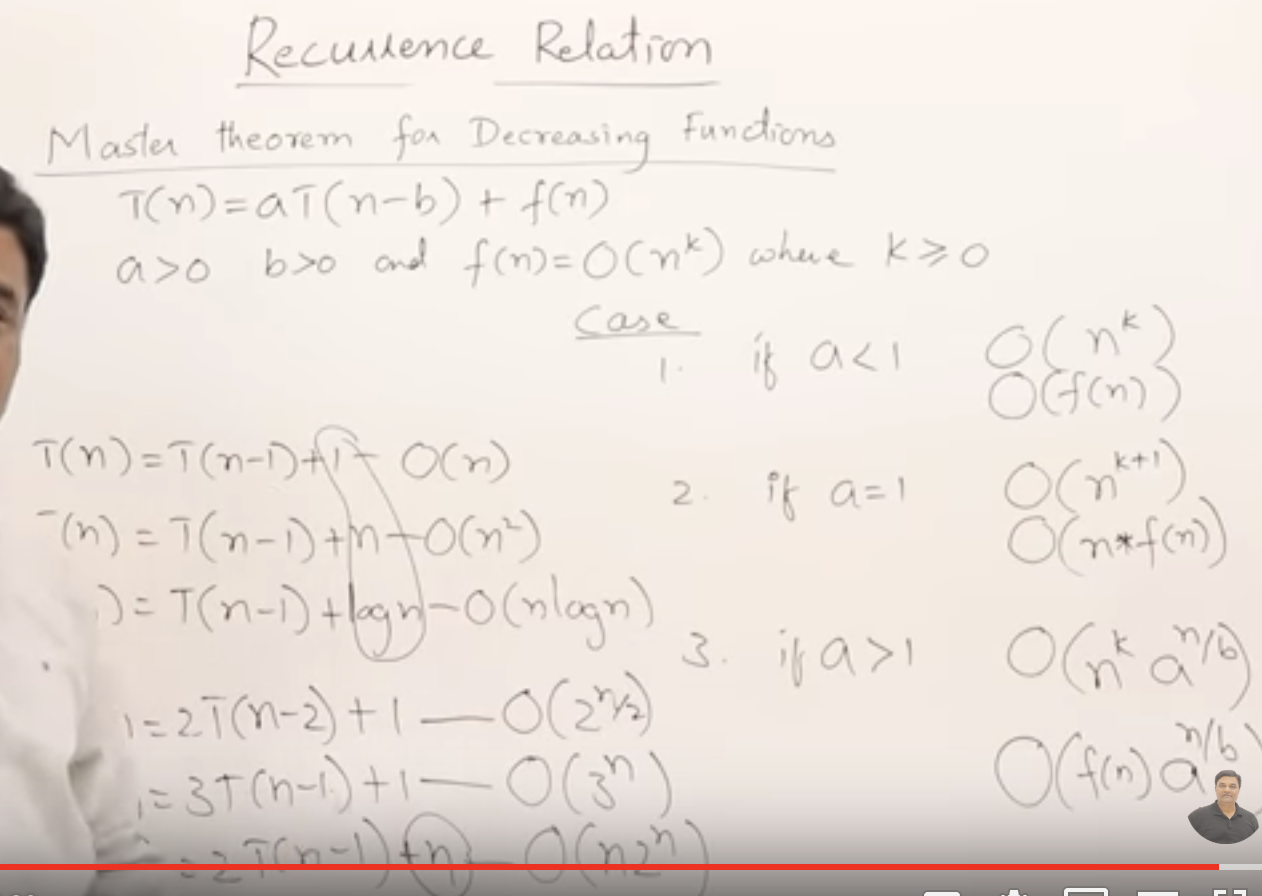 Recurrence Relation
Master theorem for Decreasing Functions
T(n)=aT(n-b) + f(n)
a>0 b>0 and f(n)=O(n^k) where k≥0
Case
1. if a<1 O(n^k)
O(f(n))
2. if a=1 O(n^{k+1})
O(n*f(n))
3. if a>1 O(n^k a^{n/b})
O(f(n) a^{n/b})
T(n)=T(n-1)+1- O(n)
(n)=T(n-1)+n-O(n²)
)=T(n-1)+logn-O(nlogn)
=2T(n-2)+1—O(2^{n/2})
=3T(n-1)+1—O(3^n)
=2T(n-1)+n-O(n2^n)